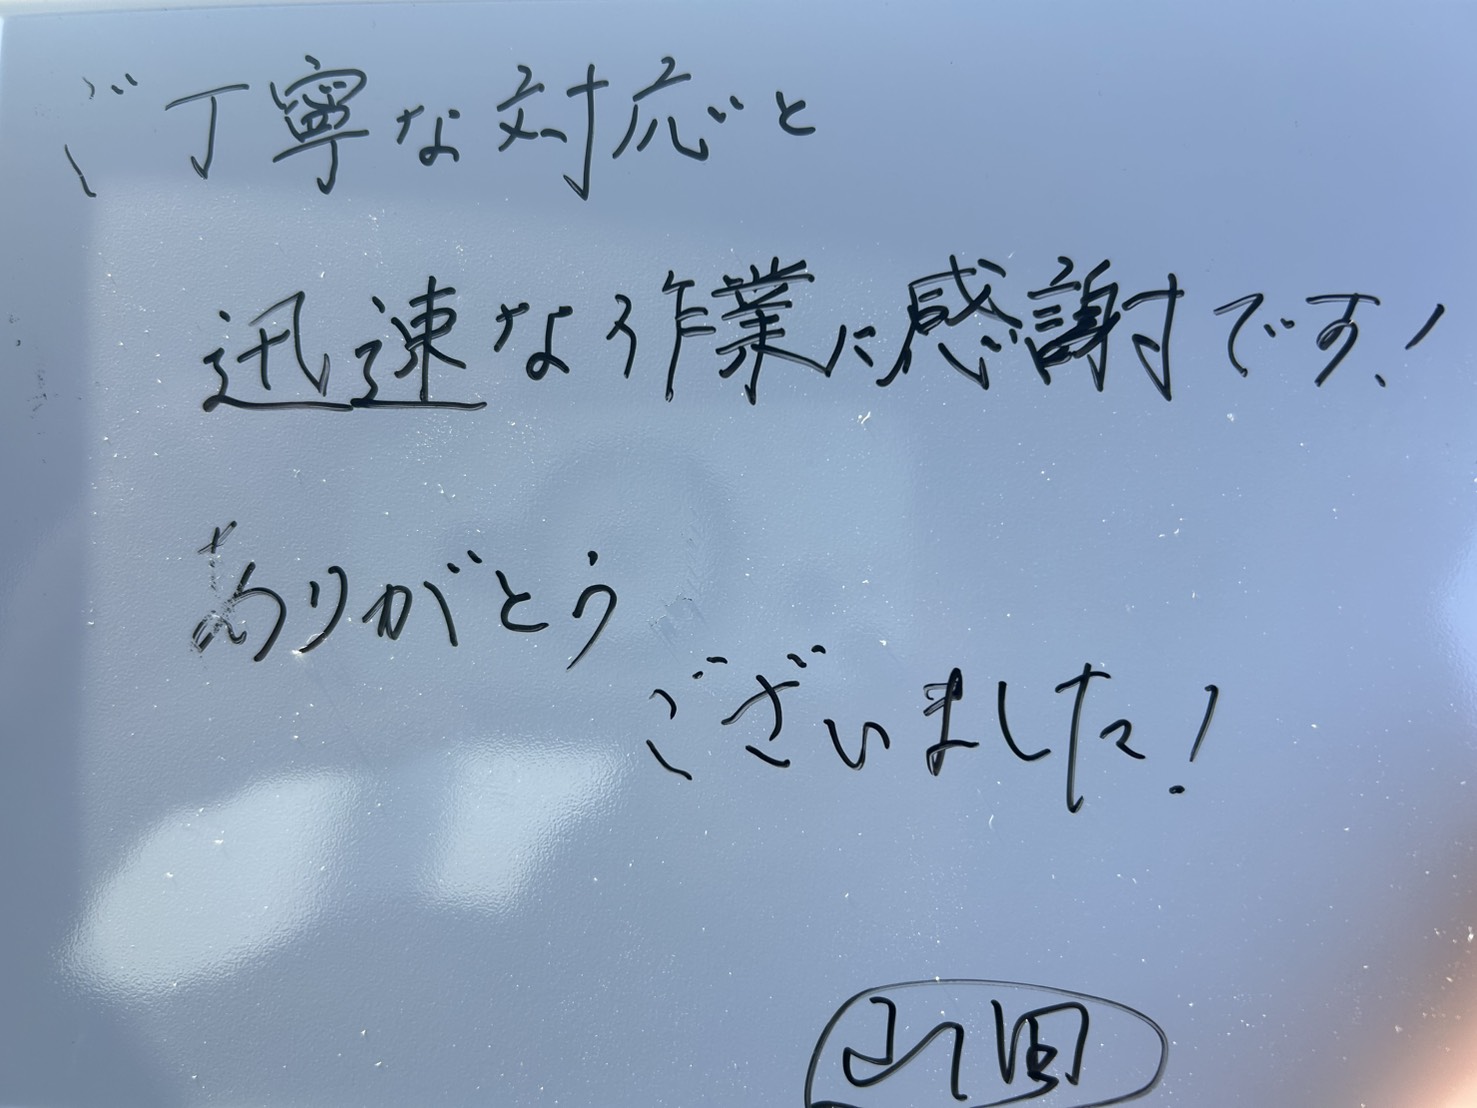 ご丁寧な対応と
迅速な作業に感謝です!
ありがとう
ございました!
山田